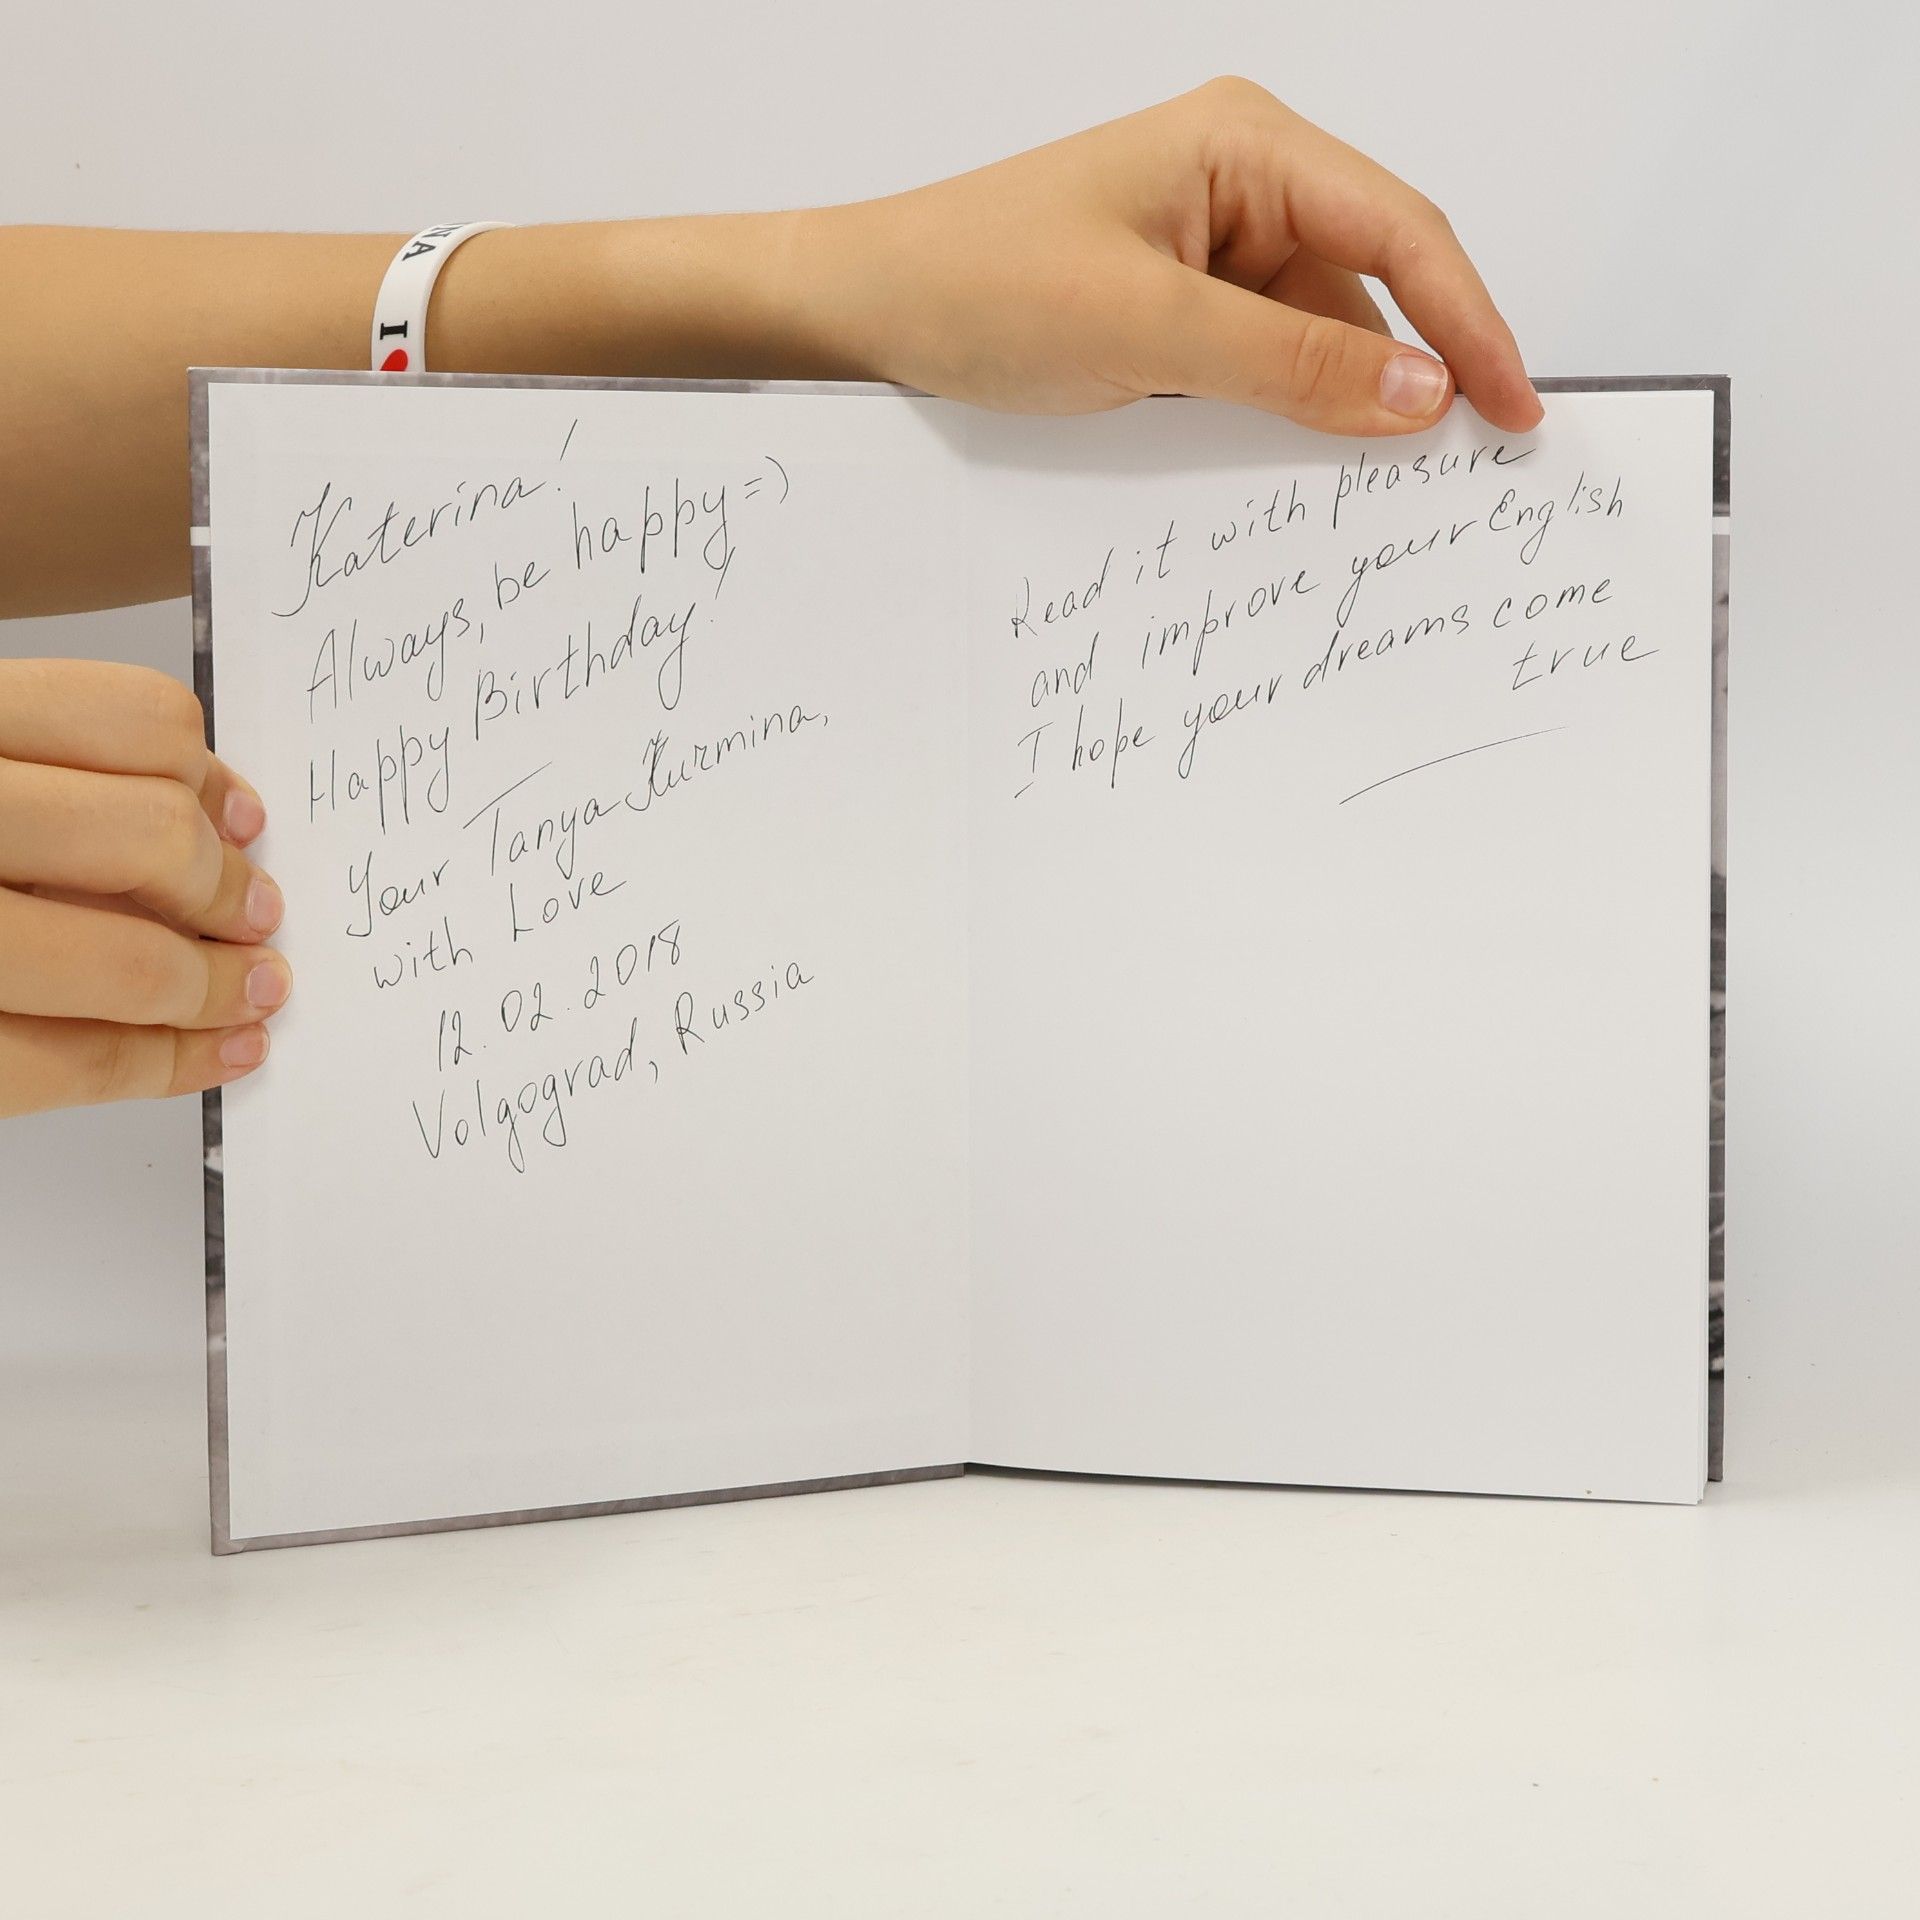 NNA
I
Katerina!
Always, be happy =)
Happy Birthday!
Your Tanya Kurmina,
with Love
12.02.2018
Volgograd, Russia
Read it with pleasure
and improve your English
I hope your dreams come
true